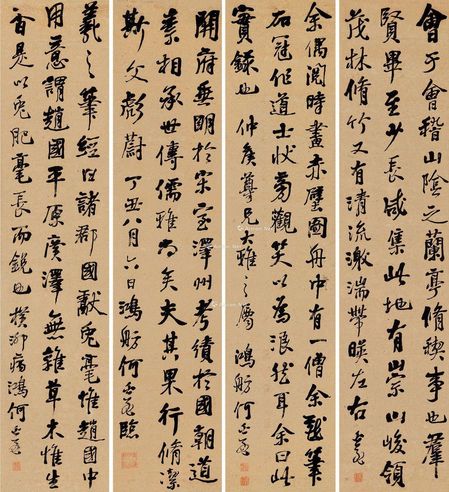 會于會稽山陰之蘭亭脩禊事也羣
賢畢至少長咸集此地有崇山峻領
茂林脩竹又有清流激湍帶暎左右
余偶閱時畫赤壁圖舟中有一僧余戲筆
石冠作道士狀旁觀笑以為浪戲耳余曰此
實錄也 仲矦尊兄大雅之屬 鴻舫何長治
開府垂明於宋室澤州考績於國朝道
業相承世傳儒雅尚矣夫其果行脩潔
斯文彪蔚 丁丑八月六日鴻舫何長治臨
羲之筆經曰諸郡國獻兔毫惟趙國中
用意謂趙國平原廣澤無雜草木惟生
香是以兔肥毫長而銳也 橫泖病鴻何長治